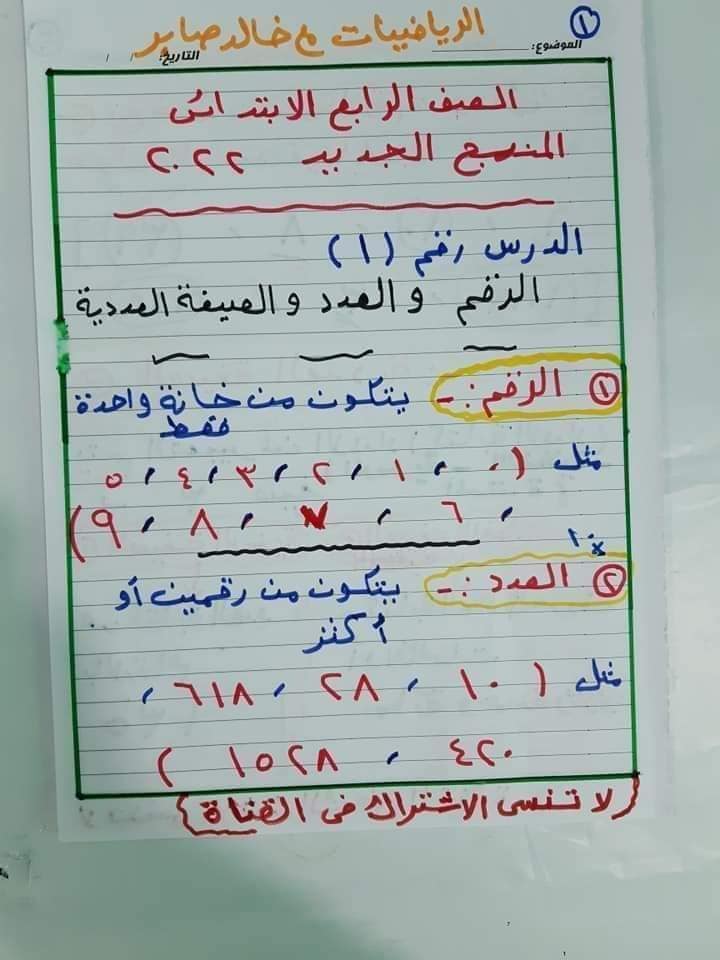 ١
الرياضيات م خالد صابر
الموضوع:
التاريخ: / /
الصف الرابع الابتدائى
المنهج الجديد ٢٠٢٢
الدرس رقم (١)
الرقم والعدد والصيغة العددية
١ الرقم:- يتكون من خانة واحدة
فقط
مثل (٠، ١، ٢، ٣، ٤، ٥
، ٦، ٧، ٨، ٩)
١٠
٢ العدد:- يتكون من رقمين أو
أكثر
مثل (١٠، ٢٨، ٦١٨،
٤٢٠، ١٥٢٨)
{لا تنسى الاشتراك فى القناة}